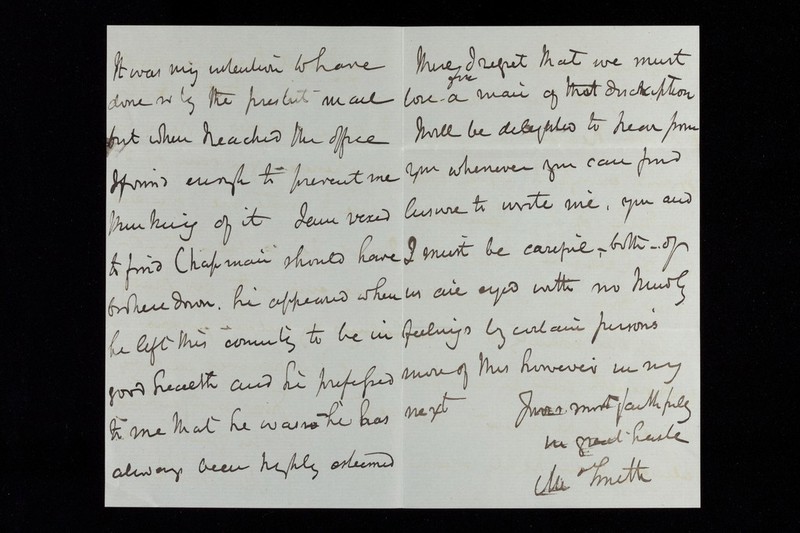 It was my intention to have
done so by the present mail
but when I reached the office
I found enough to prevent me
thinking of it I am vexed
to find Chapman should have
broken down. he appeared when
he left this country to be in
good health and he professed
to me that he was so he has
always been highly esteemed
here, I regret that we must
lose for a man of that discription
I will be delighted to hear from
you whenever you can find
leisure to write me, you and
I must be careful, both of
us are eyed with no friendly
feelings by certain persons
more of this however in my
next Yours most faithfully
in great haste
Smith